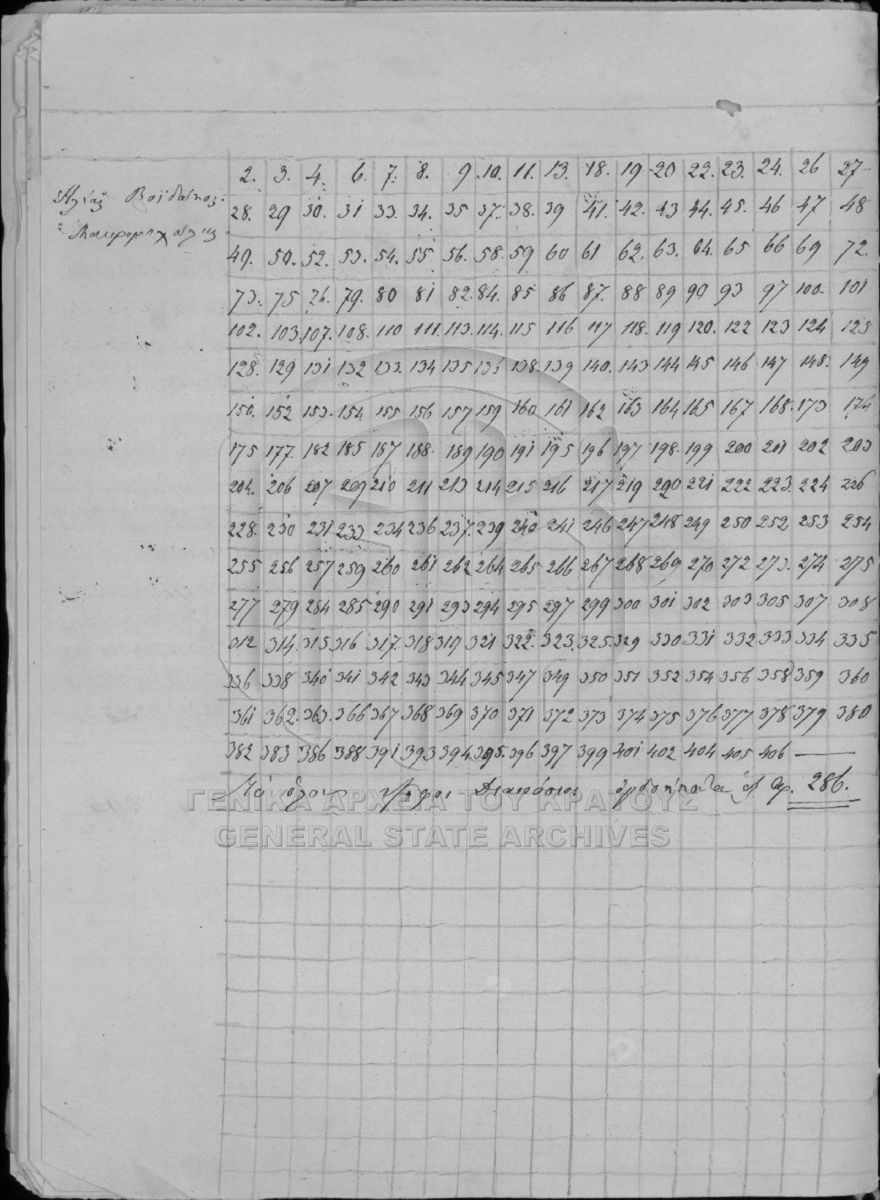 2. 3. 4. 6. 7. 8. 9. 10. 11. 13. 18. 19 20 22. 23. 24. 26 27
Ηλίας
28. 29 30. 31 33. 34. 35 37. 38. 39 41. 42. 43 44. 45. 46 47 48
49. 50. 52. 53. 54. 55. 56. 58. 59. 60 61 62. 63. 64. 65 66 69 72.
73. 75 76. 79. 80 81 82. 84. 85 86 87. 88 89 90 93 97 100. 101
102. 103. 107. 108. 110 111. 113. 114. 115 116 117 118. 119 120. 122 123 124 125
128. 129 131 132 133. 134 135 136 138. 139 140. 143 144 145 146 147 148. 149
150. 152 153. 154 155 156 157 159 160 161 162 163 164 165 167 168. 173 174
175 177. 182 185 187 188. 189 190 191 195 196 197 198. 199 200 201 202 203
204. 206 207 209 210 211 213 214 215 216 217 219 220 221 222 223. 224 226
228. 230 231 233 234 236 237. 239 240 241 246 247 248 249 250 252 253 254
255 256 257 259 260 261 262 264 265 266 267 268 269 270 272 273. 274 275
277 279 284 285 290 291 293 294 295 297 299 300 301 302 303 305 307 308
312 314. 315 316 317. 318 319 321 322. 323. 325. 329 330 331 332 333 334 335
336 338 340 341 342 343 344 345 347 349 350 351 352 354 356 358 359 360
361 362. 363. 366 367 368 369 370 371 372 373 374 375 376 377 378 379 380
382 383 386 388 391 393 394. 395. 396 397 399 401 402 404 405 406 —
Τό όλον ψήφοι Διακόσιοι ογδοήκοντα έξ αρ. 286.
ΓΕΝΙΚΑ ΑΡΧΕΙΑ ΤΟΥ ΚΡΑΤΟΥΣ
GENERAL STATE ARCHIVES